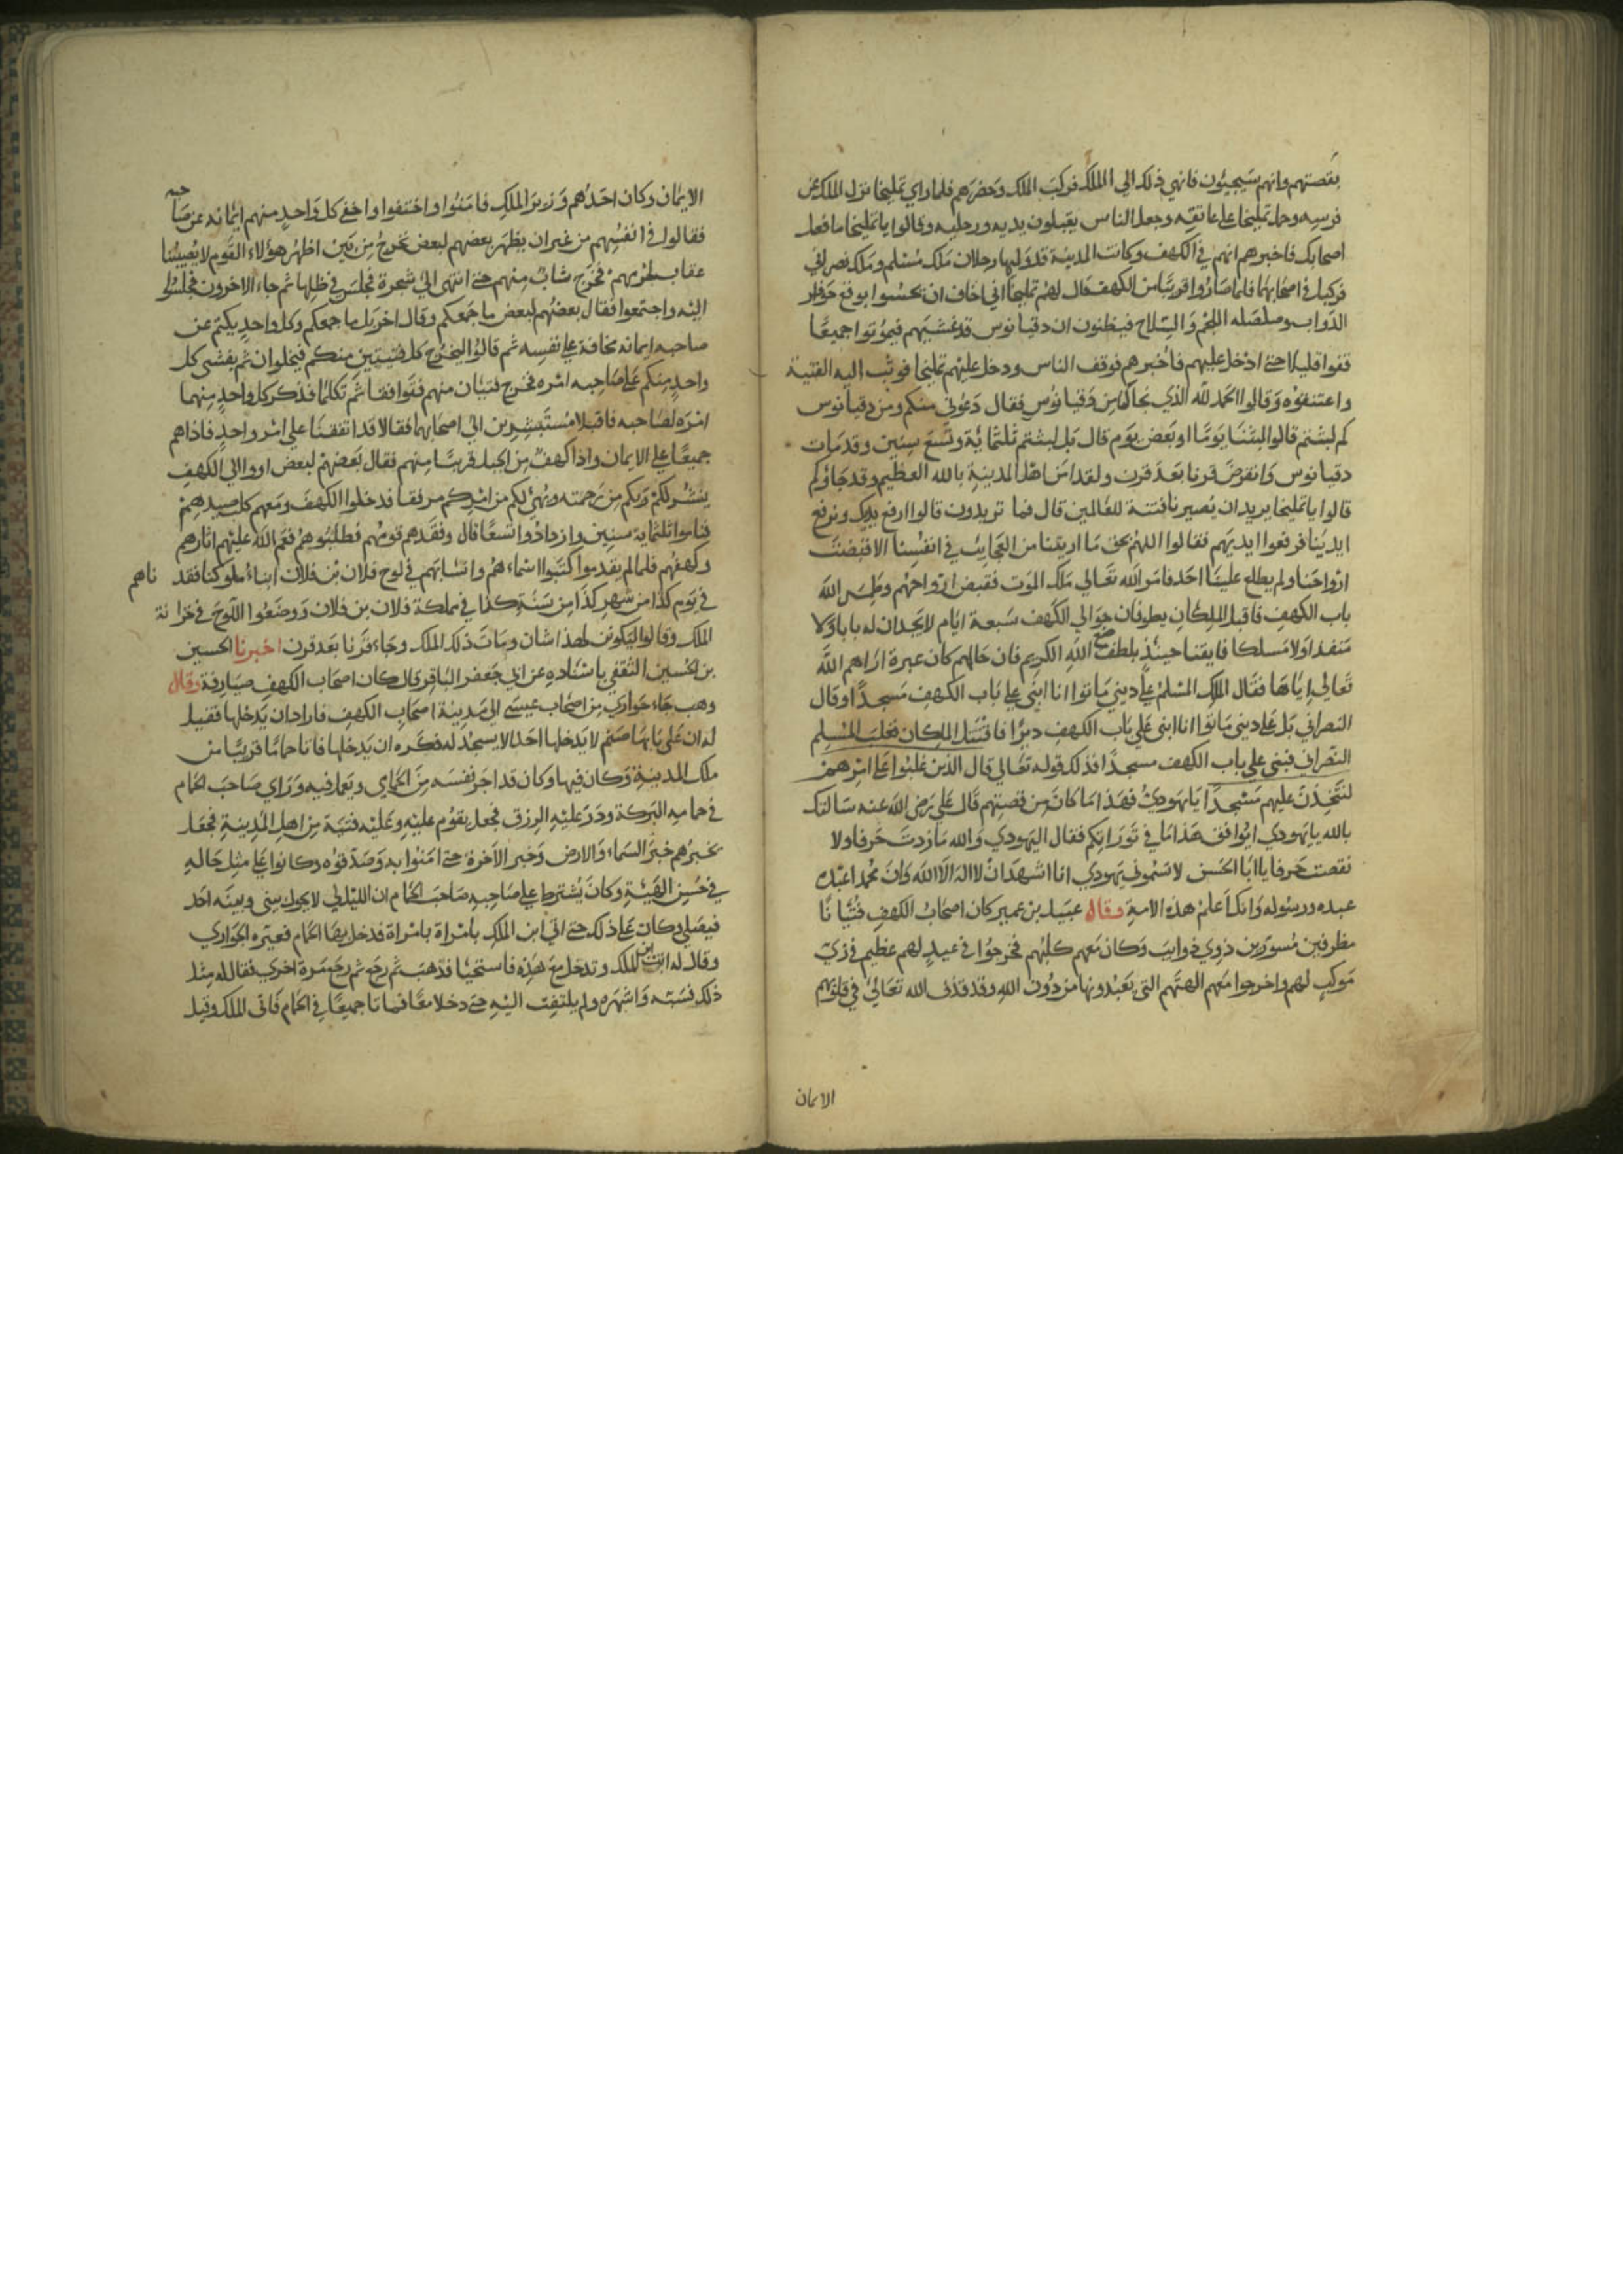 بقصتهم وانهم سيجيئون فانهي ذلك الي الملك فركب الملك وحضرهم فلما راي تمليخا نزل الملك عن
فرسه وحمل تمليخا علي عاتقه وجعل الناس يقبلون يديه ورجليه وقالوا يا تمليخا ما فعل
اصحابك فاخبرهم انهم في الكهف وكانت المدينة قد وليها رجلان ملك مسلم وملك نصراني
فركبا في اصحابهما فلما صاروا قريبا من الكهف قال لهم تمليخا اني اخاف ان يحسوا بوقع حوافر
الدواب وصلصله اللجم والسلاح فيظنون ان دقيانوس قد غشيهم فيموتوا جميعا
قفوا قليلا حتي ادخل عليهم فاخبرهم فوقف الناس ودخل عليهم تمليخا فوثب اليه الفتية
واعتنقوه وقالوا الحمد لله الذي نجاك من دقيانوس فقال دعوني منكم ومن دقيانوس
كم لبثتم قالوا لبثنا يوما او بعض يوم قال بل لبثتم ثلثماية وتسع سنين وقد مات
دقيانوس وانقرض قرنا بعد قرن ولقد امن اهل المدينة بالله العظيم وقد جاؤكم
قالوا يا تمليخا يريد ان يصيرنا فتنة للعالمين قال فما تريدون قالوا ارفع يديك ونرفع
ايدينا فرفعوا ايديهم فقالوا اللهم بحق ما اريتنا من العجايب في انفسنا الا قبضت
ارواحنا ولم يطلع علينا احد فامر الله تعالي ملك الموت فقبض ارواحهم وطمس الله
باب الكهف فاقبل الملكان يطوفان حوالي الكهف سبعة ايام لا يجدان له بابا ولا
منفدا ولا مسلكا فايقنا حينئذ بلطف صنع الله الكريم فان حالهم كان عبرة اراهم الله
تعالي اياها فقال الملك المسلم علي ديني ماتوا انا ابني علي باب الكهف مسجدا وقال
النصراني بل علي ديني ماتوا انا ابني علي باب الكهف ديرا فاقتتل الملكان فغلب المسلم
النصراني فبني علي باب الكهف مسجدا فذلك قوله تعالي قال الذين غلبوا علي امرهم
لنتخذن عليهم مسجدا يا يهودي فهذا ما كان من قصتهم قال علي رضي الله عنه سالتك
بالله يا يهودي ايوافق هذا ما في توراتكم فقال اليهودي والله ما زدت حرفا ولا
نقصت حرفا يا ابا الحسن لا تسموني يهودي انا اشهد ان لا اله الا الله وان محمدا عبده
عبده ورسوله وانك اعلم هذه الامة وقال عبيد بن عمير كان اصحاب الكهف فتيانا
مطرفين مسورين ذوي ذوايب وكان معهم كلبهم فخرجوا في عيد لهم عظيم في زي
موكب لهم واخرجوا معهم الهتهم التي يعبدونها من دون الله وقد قذف الله تعالي في قلوبهم
الايمان
الايمان وكان احدهم وزير الملك فامنوا واختفوا واخفي كل واحد منهم ايمانه عن صاحبه
فقالوا في انفسهم من غير ان يظهر بعضهم لبعض نخرج من بين اظهر هؤلاء القوم لا يصيبنا
عقاب بجرمهم فخرج شاب منهم حتي انتهي الي شجرة فجلس في ظلها ثم جاء الاخرون فجلسوا
اليه واجتمعوا فقال بعضهم لبعض ما جمعكم وقال اخر بل ما جمعكم وكل واحد يكتم عن
صاحبه ايمانه مخافة علي نفسه ثم قالوا ليخرج كل فتيتين منكم فيخلوان ثم يفشي كل
واحد منكم علي صاحبه امره فخرج فتيان منهم فتوافقا ثم تكلما فذكر كل واحد منهما
امره لصاحبه فاقبلا مستبشرين الي اصحابهما فقالا قد اتفقنا علي امر واحد فاذا هم
جميعا علي الايمان واذا كهف من الجبل قريبا منهم فقال بعضهم لبعض اووا الي الكهف
ينشر لكم ربكم من رحمته ويهيئ لكم من امركم مرفقا فدخلوا الكهف ومعهم كلب صيدهم
فناموا ثلثماية سنين وازدادوا تسعا قال وفقدهم قومهم فطلبوهم فعم الله عليهم اثارهم
وكهفهم فلما لم يقدروا كتبوا اسماءهم وانسابهم في لوح فلان بن فلان ابناء ملوكنا فقدناهم
في يوم كذا من شهر كذا من سنة كذا في مملكة فلان بن فلان ووضعوا اللوح في خزانة
الملك وقالوا ليكونن لهذا شان ومات ذلك الملك وجاء قرنا بعد قرن اخبرنا الحسين
بن الحسين الثقفي باسناده عن ابي جعفر الباقر قال كان اصحاب الكهف صيارفة وقال
وهب جاء حواري من اصحاب عيسي الي مدينة اصحاب الكهف فاراد ان يدخلها فقيل
له ان علي بابها صنم لا يدخلها احد الا يسجد له فكره ان يدخلها فاتا حماما قريبا من
ملك المدينة وكان فيها وكان قد اجر نفسه من الحمامي ويعمل فيه وراي صاحب الحمام
في حمامه البركة ودر عليه الرزق فجعل يقوم عليه وعليه فتية من اهل المدينة فجعل
يخبرهم خبر السماء والارض وخبر الاخرة حتي امنوا به وصدقوه وكانوا علي مثل حاله
في حسن الهيئة وكان يشترط علي صاحبه صاحب الحمام ان الليل لي لا يحول بيني وبينه احد
فيصلي وكان علي ذلك حتي اتي ابن الملك بامراة بامراة فدخل بها الحمام فعيره الحواري
وقال له انت ابن الملك وتدخل مع هذه فاستحيا فذهب ثم رجع ثم رجع مرة اخري فقال له مثل
ذلك فسبه واشهره ولم يلتفت اليه حتي دخلا معا فماتا جميعا في الحمام فاتي الملك وقيل